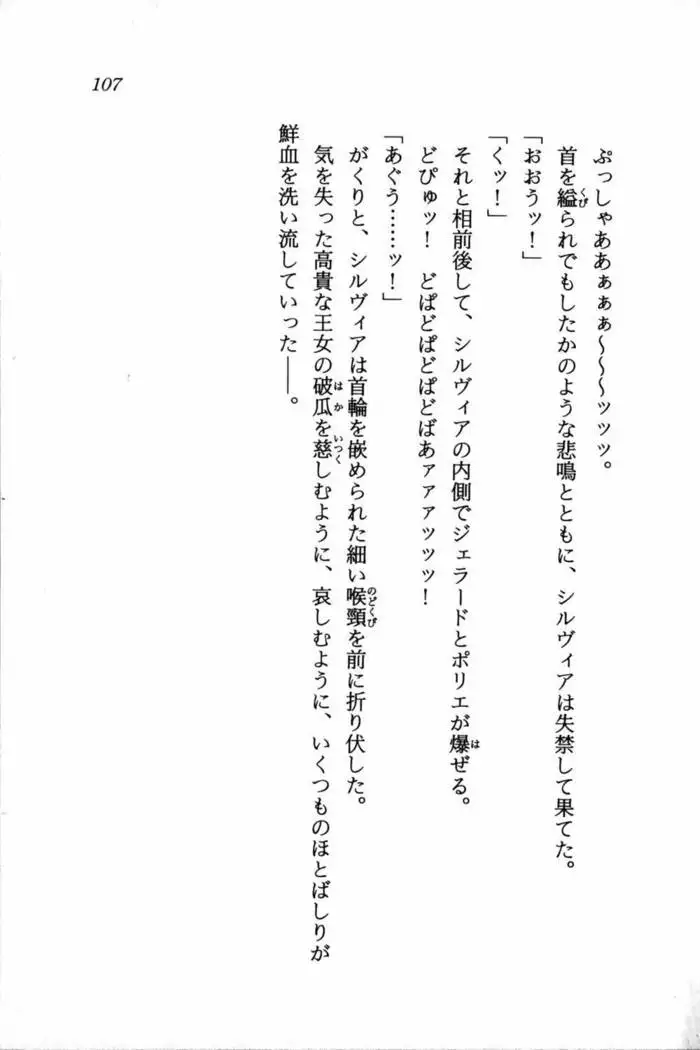 107
ぷっしゃああぁぁぁ～～～ッッッ。
首を縊られでもしたかのような悲鳴とともに、シルヴィアは失禁して果てた。
「おおうッ！」
「くッ！」
それと相前後して、シルヴィアの内側でジェラードとポリエが爆ぜる。
どぴゅッ！　どぱどぱどぱどばあァァァッッッ！
「あぐう……ッ！」
がくりと、シルヴィアは首輪を嵌められた細い喉頸を前に折り伏した。
気を失った高貴な王女の破瓜を慈しむように、哀しむように、いくつものほとばしりが
鮮血を洗い流していった――。